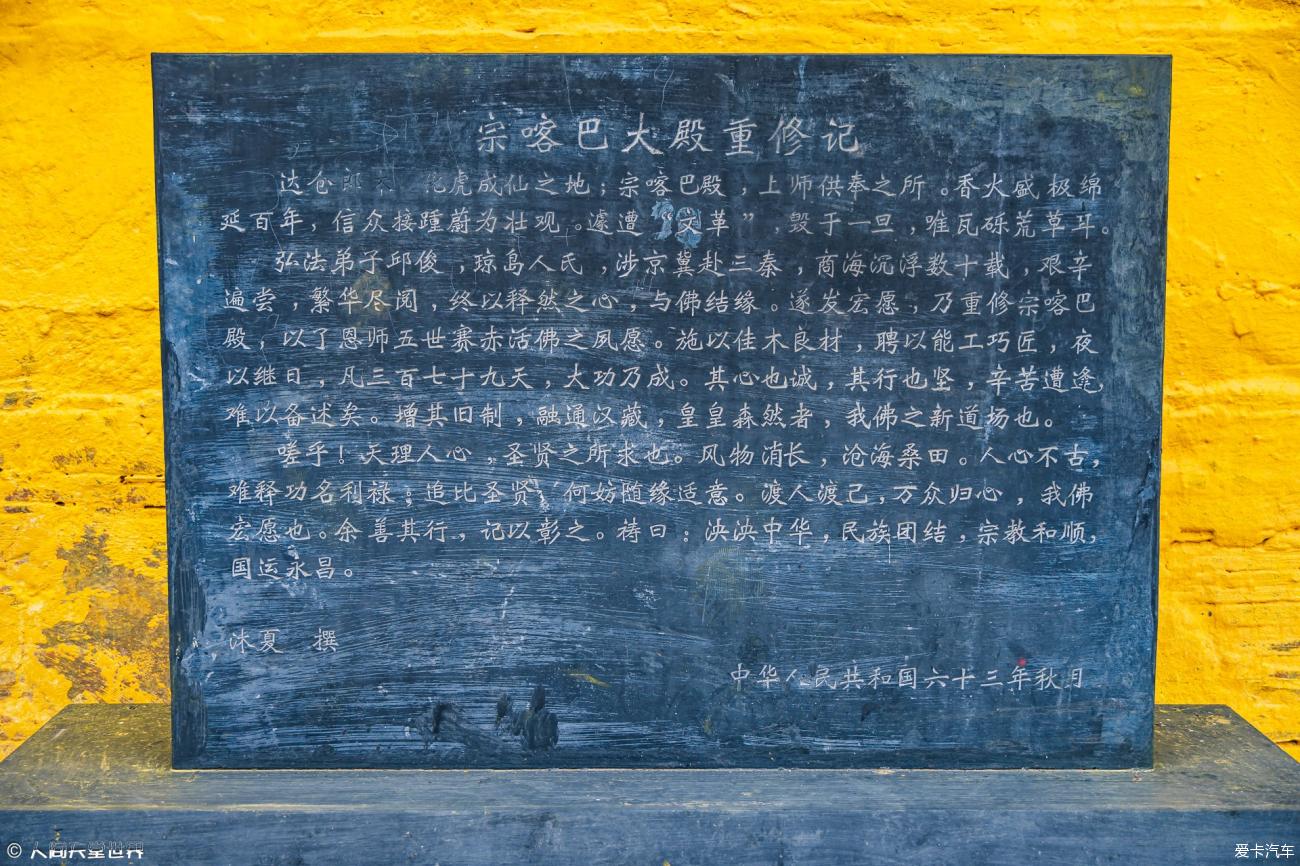 宗喀巴大殿重修记
达仓郎木 化虎成仙之地；宗喀巴殿，上师供奉之所。香火盛极绵
延百年，信众接踵蔚为壮观。遽遭“文革”，毁于一旦，唯瓦砾荒草耳。
弘法弟子邱俊，琼岛人氏，涉京冀赴三秦，商海沉浮数十载，艰辛
遍尝，繁华尽阅，终以释然之心，与佛结缘。遂发宏愿，乃重修宗喀巴
殿，以了恩师五世赛赤活佛之夙愿。施以佳木良材，聘以能工巧匠，夜
以继日，凡三百七十九天，大功乃成。其心也诚，其行也坚，辛苦遭逢，
难以备述矣。增其旧制，融通汉藏，皇皇森然者，我佛之新道场也。
嗟乎！天理人心，圣贤之所求也。风物消长，沧海桑田。人心不古，
难释功名利禄；追比圣贤，何妨随缘适意。渡人渡己，万众归心，我佛
宏愿也。余善其行，记以彰之。祷曰：泱泱中华，民族团结，宗教和顺，
国运永昌。
沐夏 撰
中华人民共和国六十三年秋月
© 人间天堂世界
爱卡汽车